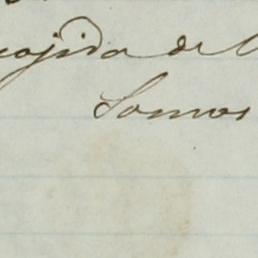 cojida de
Somos